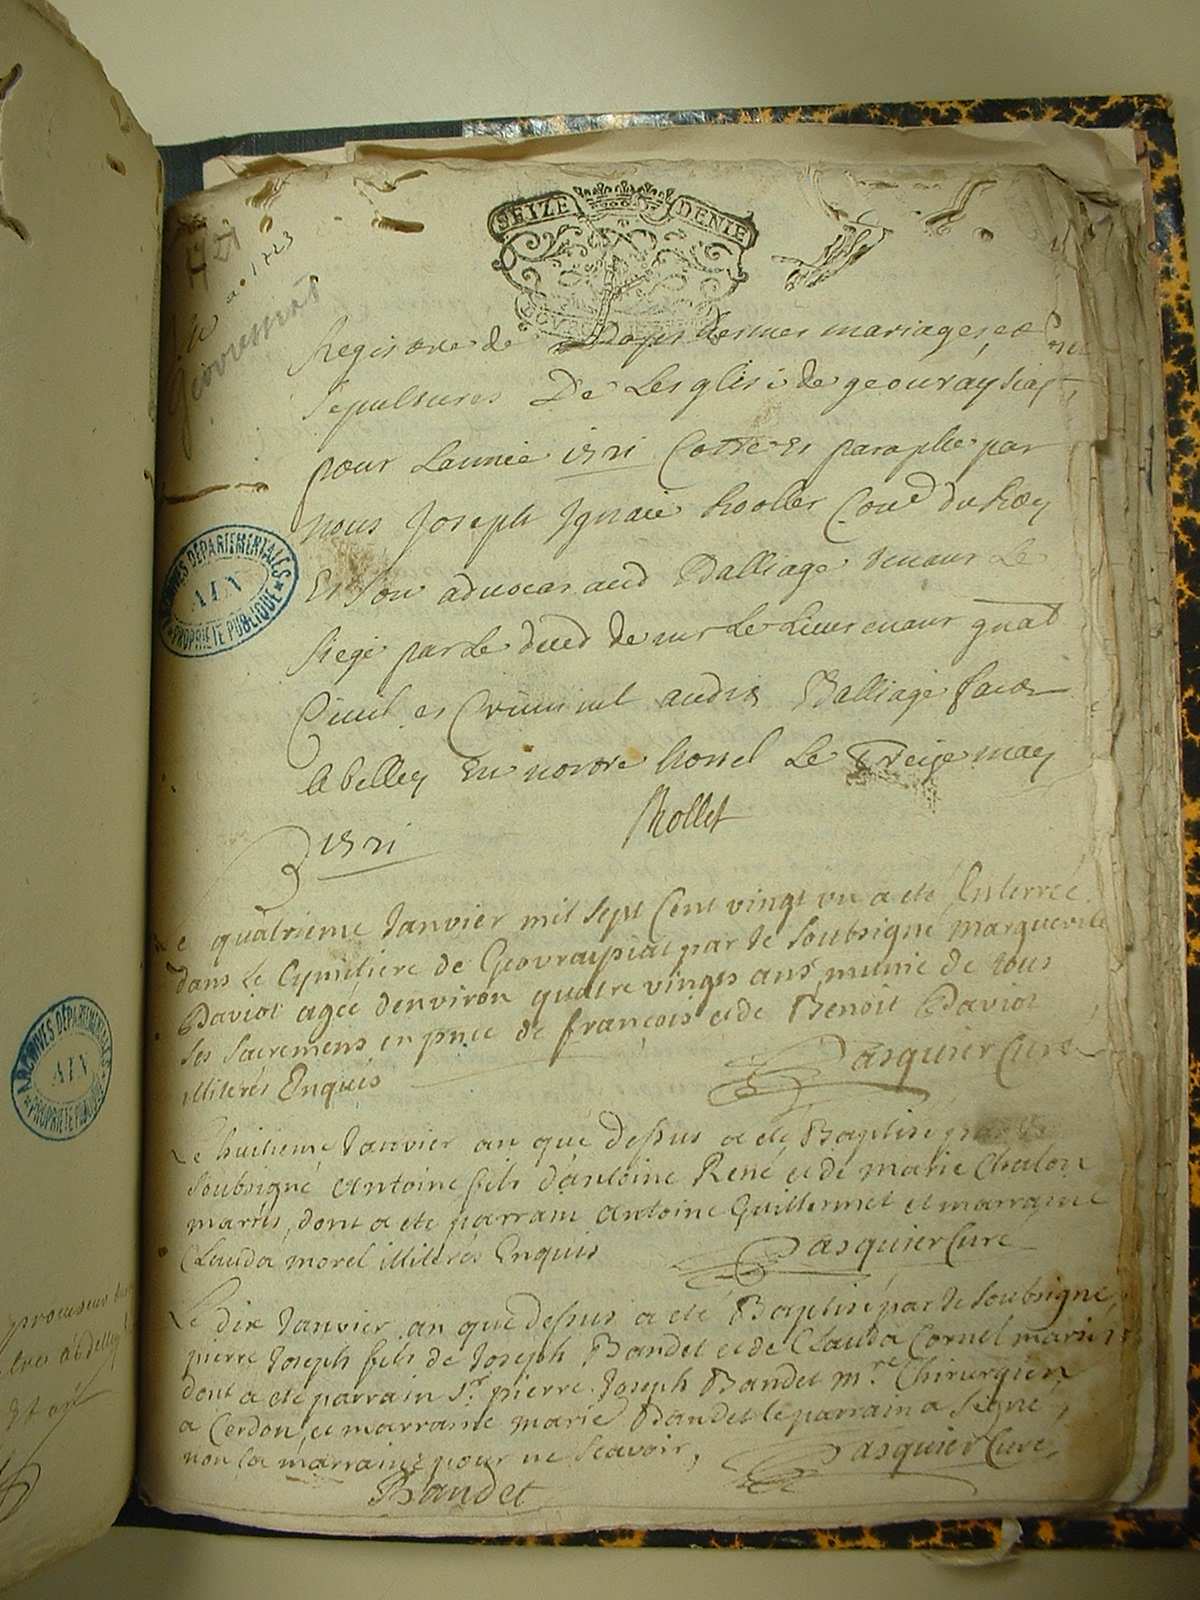 SEIZE DENIE
a. 1723
Geovreissiat
Registre de Baptesmes mariages, et
sepultures De Lesglise de geovraysiat
pour Lannée 1721 Cotté et paraphé par
nous Joseph Ignace Rollet Conr du Roy
Et son advocat aud Balliage tenant Le
siege par Le deced de mr Le Lieutenant gnal
Civil et Criminel audit Balliage fait
A belley En notre hostel Le Treize may
1721
Rollet
Le quatrieme Janvier mil sept Cent vingt un a eté Enterrée
dans Le Cymitiere de Geovraysiat par le soubsigné margueritte
Daviot agée denviron quatre vingts ans, munie de tous
ses sacremens en pnce de françois et de Benoit Daviot
illiterés Enquis
Pasquier Curé
Le huitieme Janvier an que dessus a eté Baptisé par le
soubsigné Antoine fils d'antoine René et de marie Chalon
mariés, dont a eté parrain antoine Guillermet et marraine
Clauda morel illiterés Enquis
Pasquier Curé
Le dix Janvier an que dessus a eté Baptisé par le soubsigné,
pierre Joseph fils de Joseph Bandet et de Clauda Cornel mariés
dont a eté parrain sr. pierre Joseph Bandet mre Chirurgien
a Cerdon, et marraine marie Bandet le parrain a signé,
non la marraine pour ne scavoir,
Pasquier Curé
Bandet
ARCHIVES DÉPARTEMENTALES
AIN
PROPRIÉTÉ PUBLIQUE
ARCHIVES DÉPARTEMENTALES
AIN
PROPRIÉTÉ PUBLIQUE
procureur